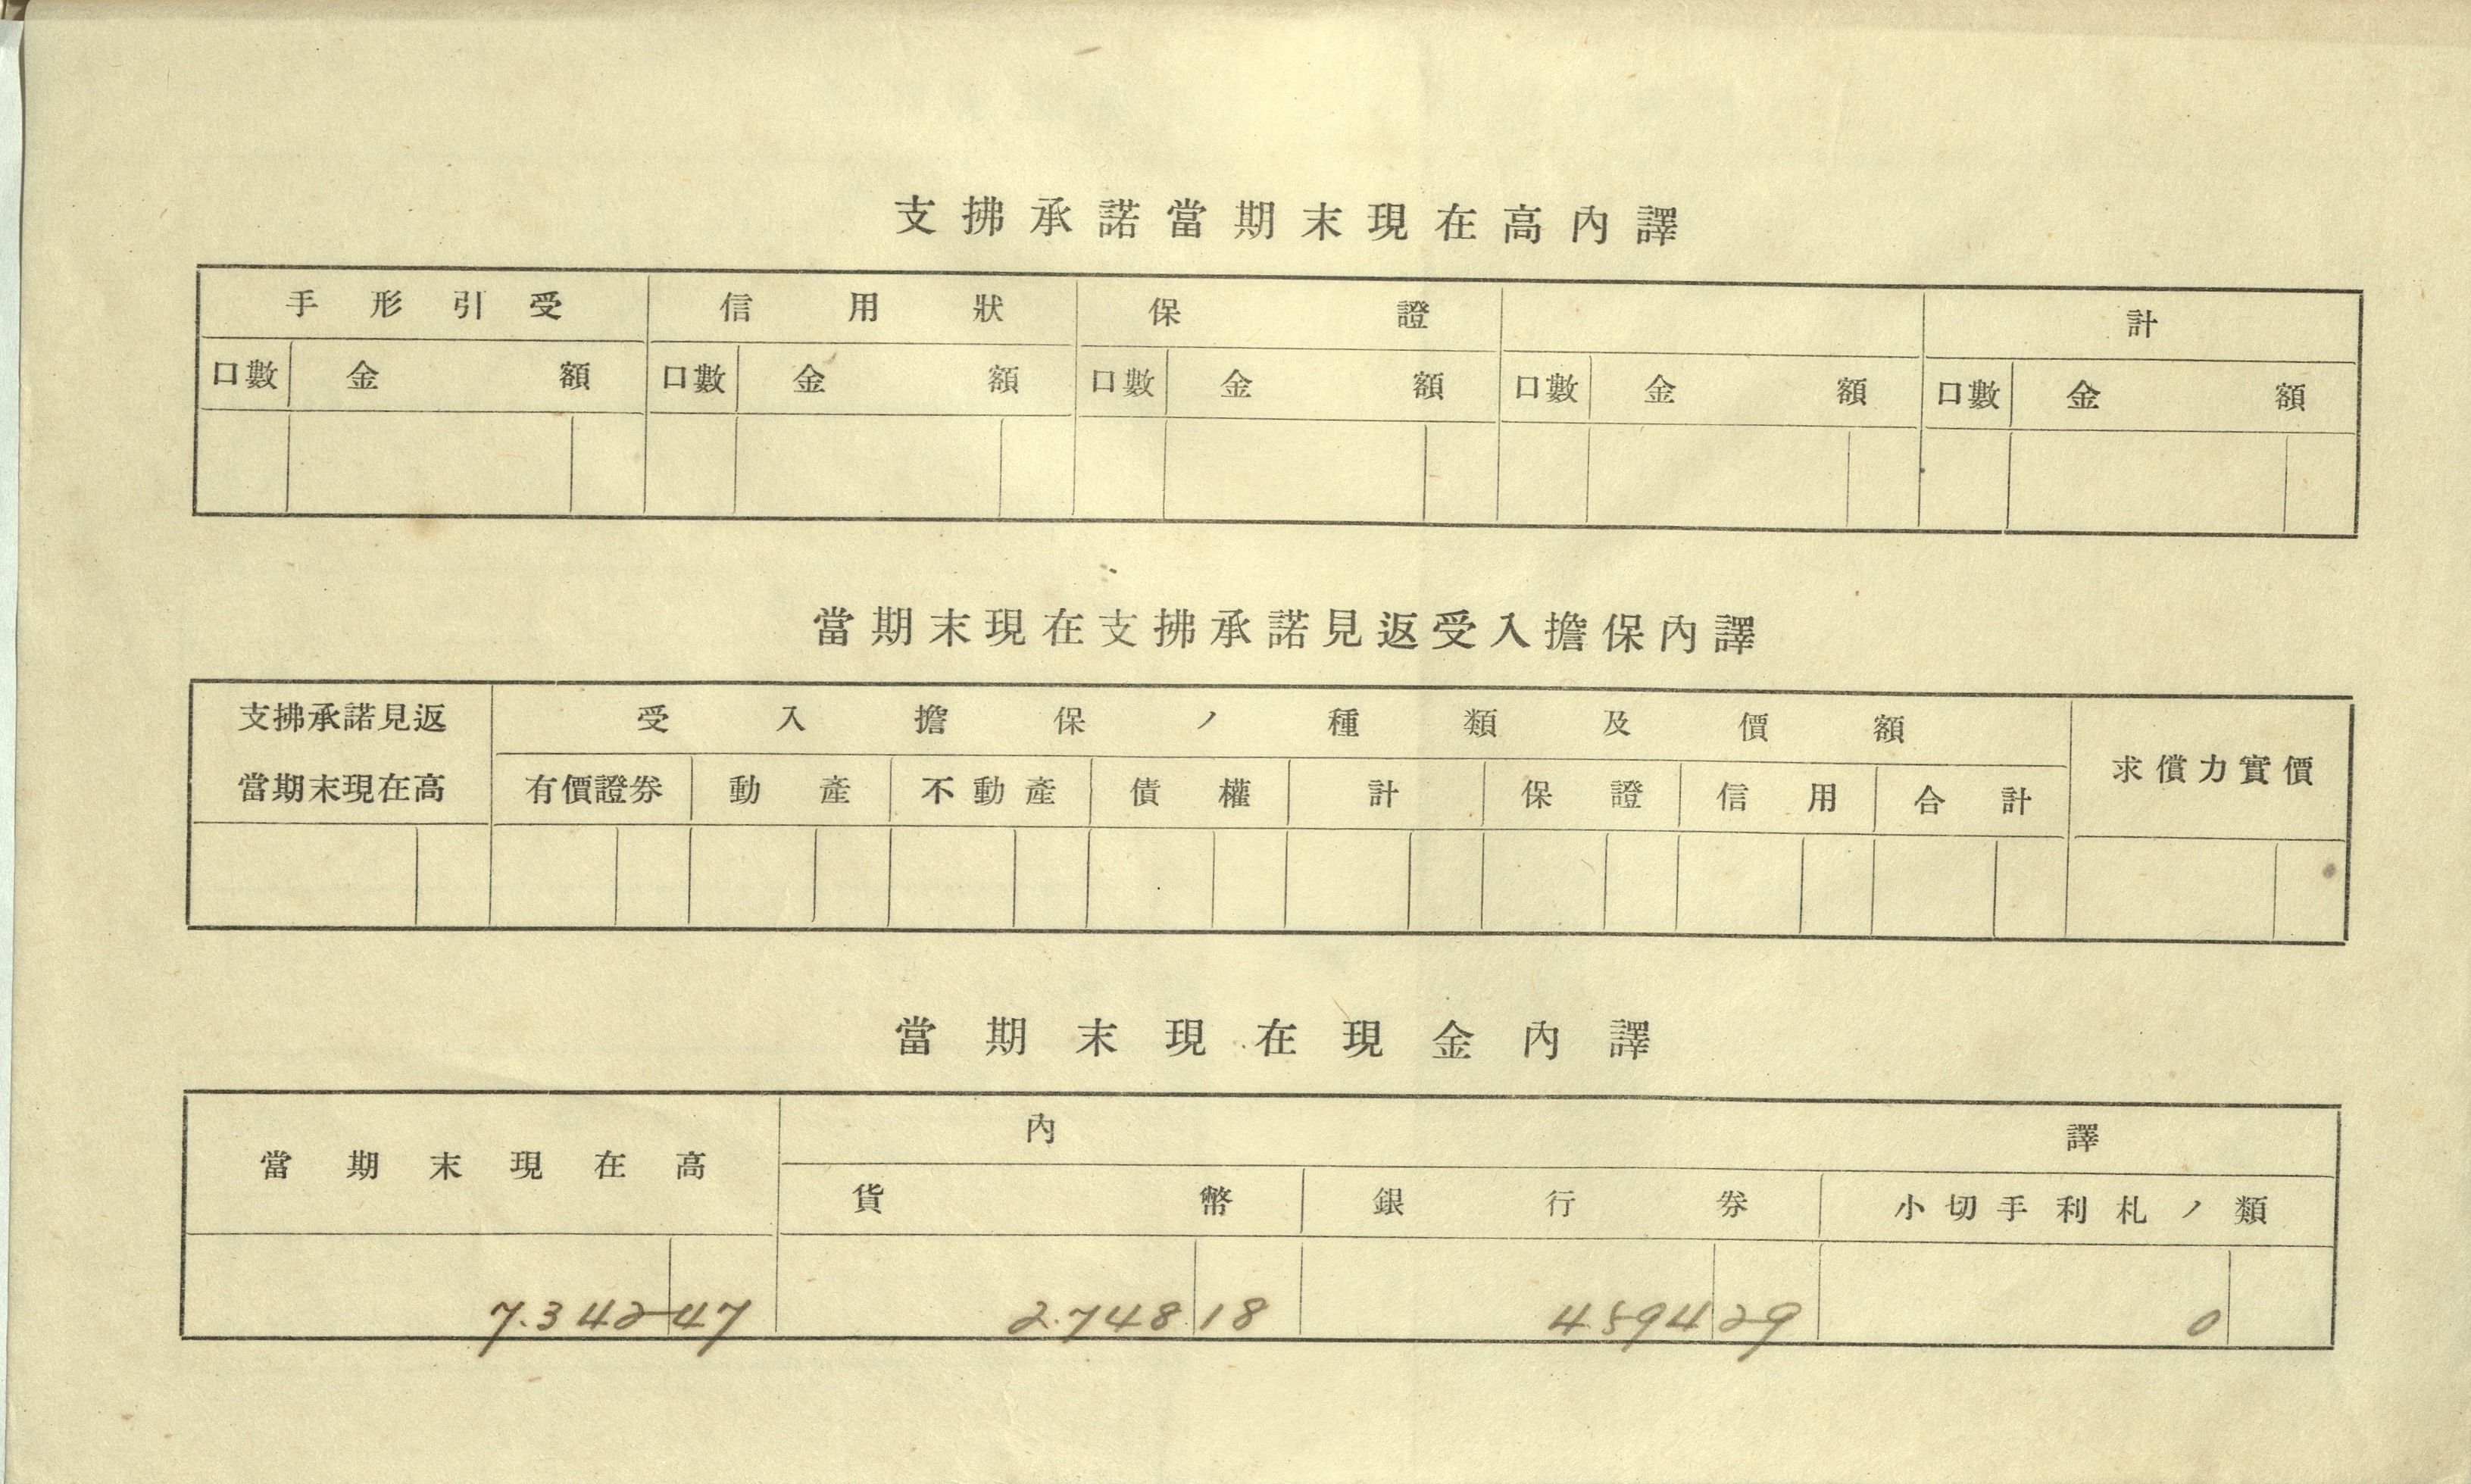 支拂承諾當期末現在高內譯
手形引受 信用狀 保證 計
口數 金額 口數 金額 口數 金額 口數 金額 口數 金額
當期末現在支拂承諾見返受入擔保內譯
支拂承諾見返 受入擔保ノ種類及價額 求償力實價
當期末現在高 有價證券 動產 不動產 債權 計 保證 信用 合計
當期末現在現金內譯
當期末現在高 內譯
貨幣 銀行券 小切手利札ノ類
7.342 47 2.748 18 4.594 29 0